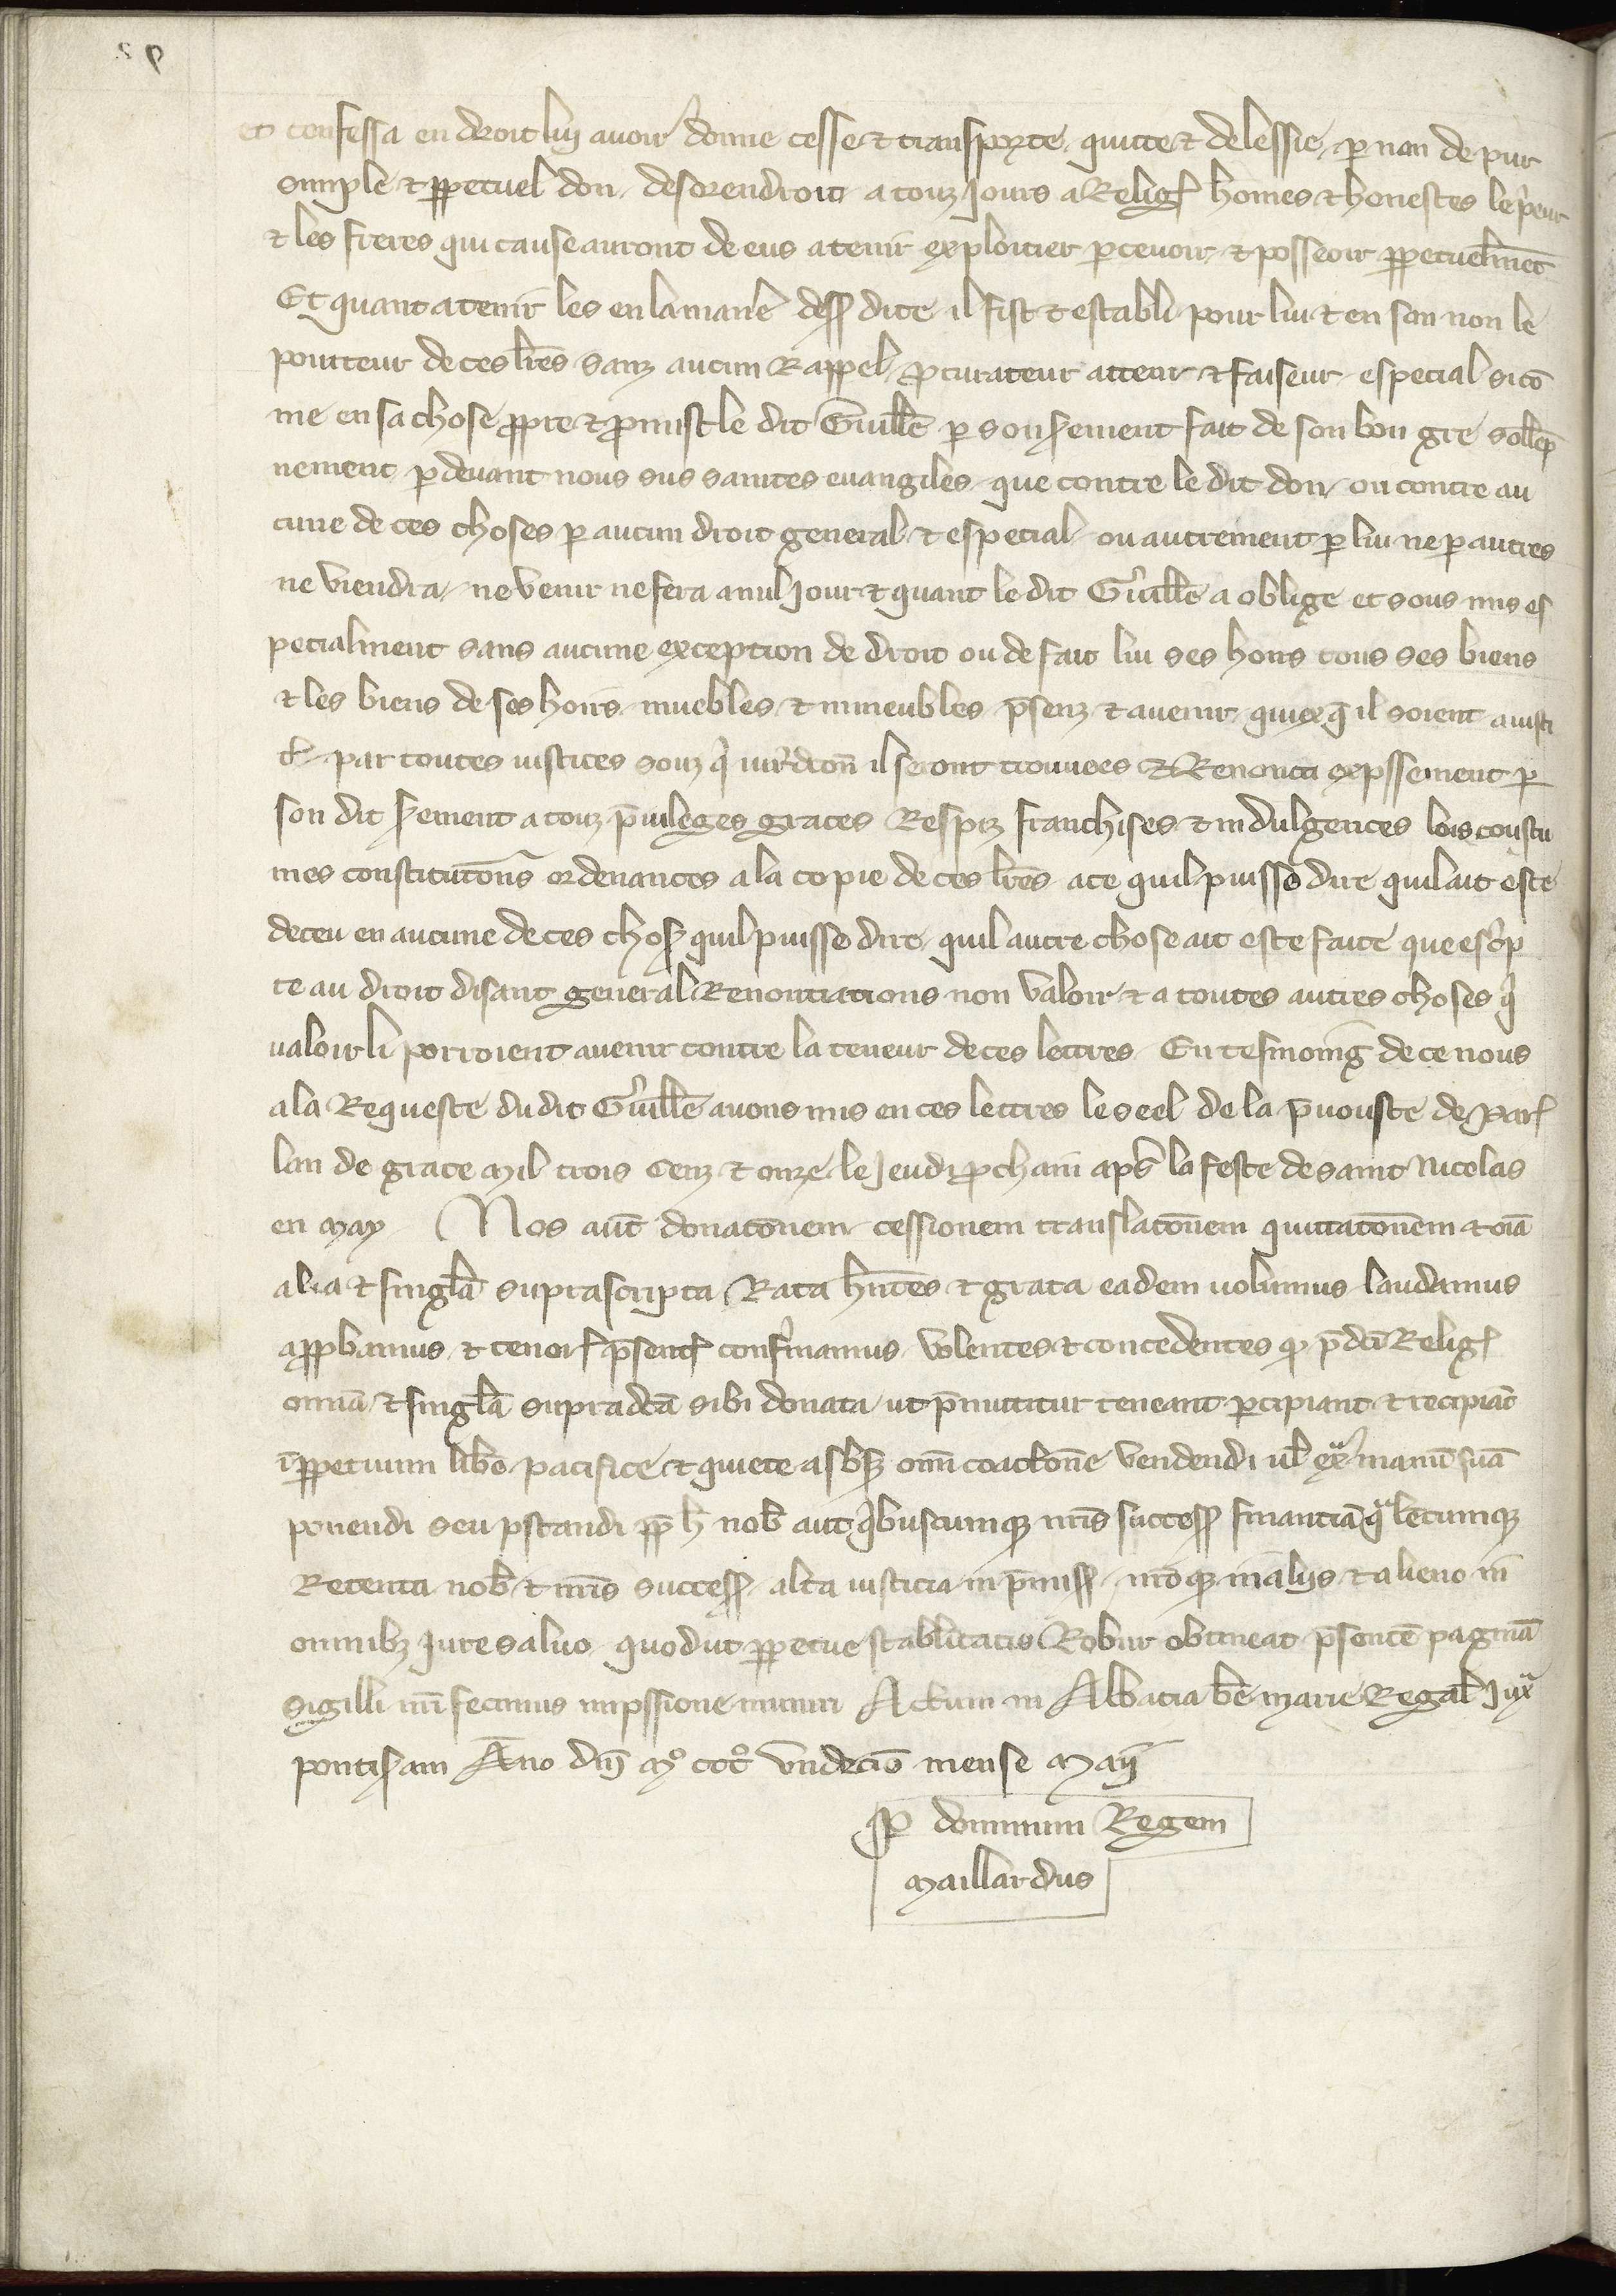 et confessa en droit luy avoir donne cesse et transporte quitte et delessie par non de pur
simple et ꝑpetuel don desorendroit a touz jours a Religꝭ hom̄es et honestes le p̾eur
et les freres qui cause auront de eus a tenir exploitier ꝑcevoir et posseoir ꝑpetuelmēt
Et quant a tenir les en la manie᷑ dessꝭ dite il fist et establi pour lui et en son non le
pourteur de ces lr̄es sanz aucun Rappel ꝓcurateur atteur et faiseur especial sicō
me en sa chose ꝓpre et ꝓmist le dit Guill̄e ꝑ son ẜement fait de son bon gre soll̄ep
nement ꝑ devant nous sus saintes euangiles que contre le dit don ou contre au
cune de ces choses ꝑ aucun droit general et especial ou autrement ꝑ lui ne ꝑ autres
ne viendra ne venir ne fera a nul jour et quant le dit Guill̄e a oblige et sous mis es
pecialment sans aucune exception de droit ou de fait lui ses hoirs tous ses biens
et les biens de ses hoirs muebles et inmeubles p̄senz et avenir quiexq̄ il soient a justi
cꝭ par toutes justices souz q̾ jur̾dcōn il seront trouvees Et Renonca exp̄ssement ꝑ
son dit ẜement a touz p̄vileges graces Respiz franchises et indulgences lois coustu
mes constitutōns ordenances a la copie de ces lr̄es a ce quil puisse dire quil ait este
deceu en aucune de ces chosꝭ quil puisse dire quil autre chose ait este faite que esc̾p
te au droit disant general Renontiations non valoir et a toutes autres choses q̾
valoir li porroient avenir contre la teneur de ces lettres En tesmoing de ce nous
a la Requeste du dit Guill̄e avons mis en ces lettres le seel de la p̄vouste de Parꝭ
lan de grace mil trois cenz et onze le jeudi ꝓchain apr̄s la feste de saint Nicolas
en may Nos aut̄ donatōnem cessionem translatōnem quittatōnem et oīa
alia et singl̄a suprascripta Rata hn̄tes et grata eadem volumus laudamus
apꝓbamus et tenorꝭ p̄sentꝭ conf̾mamus volentes et concedentes ꝙ p̄dc̄i Religꝭ
omīa et singl̄a supradc̄a sibi donata ut p̄mittitur teneant ꝑcipiant et recipiāt
īꝑpetuum lib̄e pacifice et quiete absqꝫ omī coactōne vendendi vl̄ ext̾ manū suā
ponendi seu p̄standi ꝓp̄ h̄ nob̄ aut q̾buscumqꝫ nr̄is successꝭ financiā q̾lēcumqꝫ
Retenta nob̄ et nr̄is successꝭ alta justicia in p̄missꝭ nr̄oqꝫ in aliis et alieno in
omnibꝫ jure salvo quod ut ꝑpetue stabilitatis Robur obtineat p̄sentē paginā
sigilli nr̄i fecimus imp̄ssione muniri Actum in Abbatia bē Marie Regal̄ jux̾
pontisaram Āno dnī Mº cccº undecīo mense Maij
Per dominum Regem
Maillardus